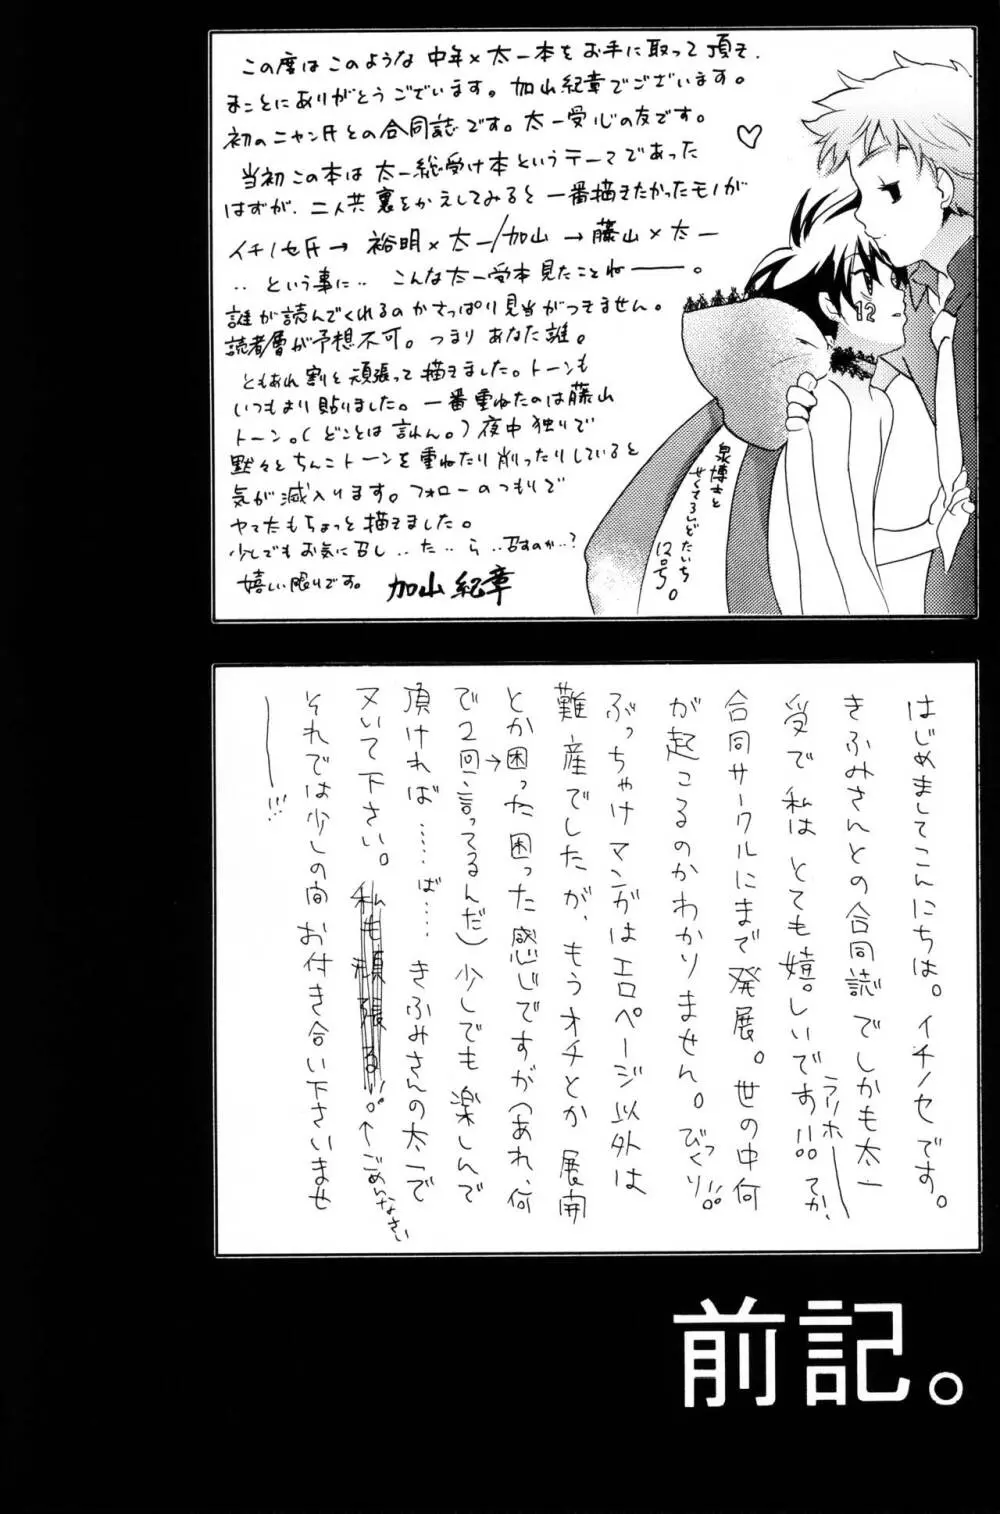 この度はこのような中年×太一本をお手に取って頂き、
まことにありがとうございます。加山紀章でございます。
初のニャン氏との合同誌です。太一受心の友です。
当初この本は太一総受け本というテーマであった
はずが、二人共裏をかえしてみると一番描きたかったモノが
イチノセ氏→裕明×太一/加山→藤山×太一
‥という事に‥こんな太一受本見たことねーー。
誰が読んでくれるのかさっぱり見当がつきません。
読者層が予想不可。つまりあなた誰。
ともあれ割と頑張って描きました。トーンも
いつもより貼りました。一番重ねたのは藤山
トーン。(どことは言わん。)夜中独りで
黙々とちんこトーンを重ねたり削ったりしていると
気が滅入ります。フォローのつもりで
ヤマたもちょっと描きました。
少しでもお気に召し‥た‥ら‥召すのか‥?
嬉しい限りです。 加山紀章
12
泉博士と
せくてろいどたいち
12号。
はじめましてこんにちは。イチノセです。
きふみさんとの合同誌でしかも太一
受で私はとても嬉しいです!!ラリホー てか、
合同サークルにまで発展。世の中何
が起こるのかわかりません。びっくり!!
ぶっちゃけマンガはエロページ以外は
難産でしたが、もうオチとか展開
とか困った困った感じですが(あれ、何
で2回言ってるんだ)少しでも楽しんで
頂ければ……ば……きふみさんの太一で
ヌいて下さい。私も頑張る!!←ごめんなさい
それでは少しの間お付き合い下さいませ
ーー!!!
前記。